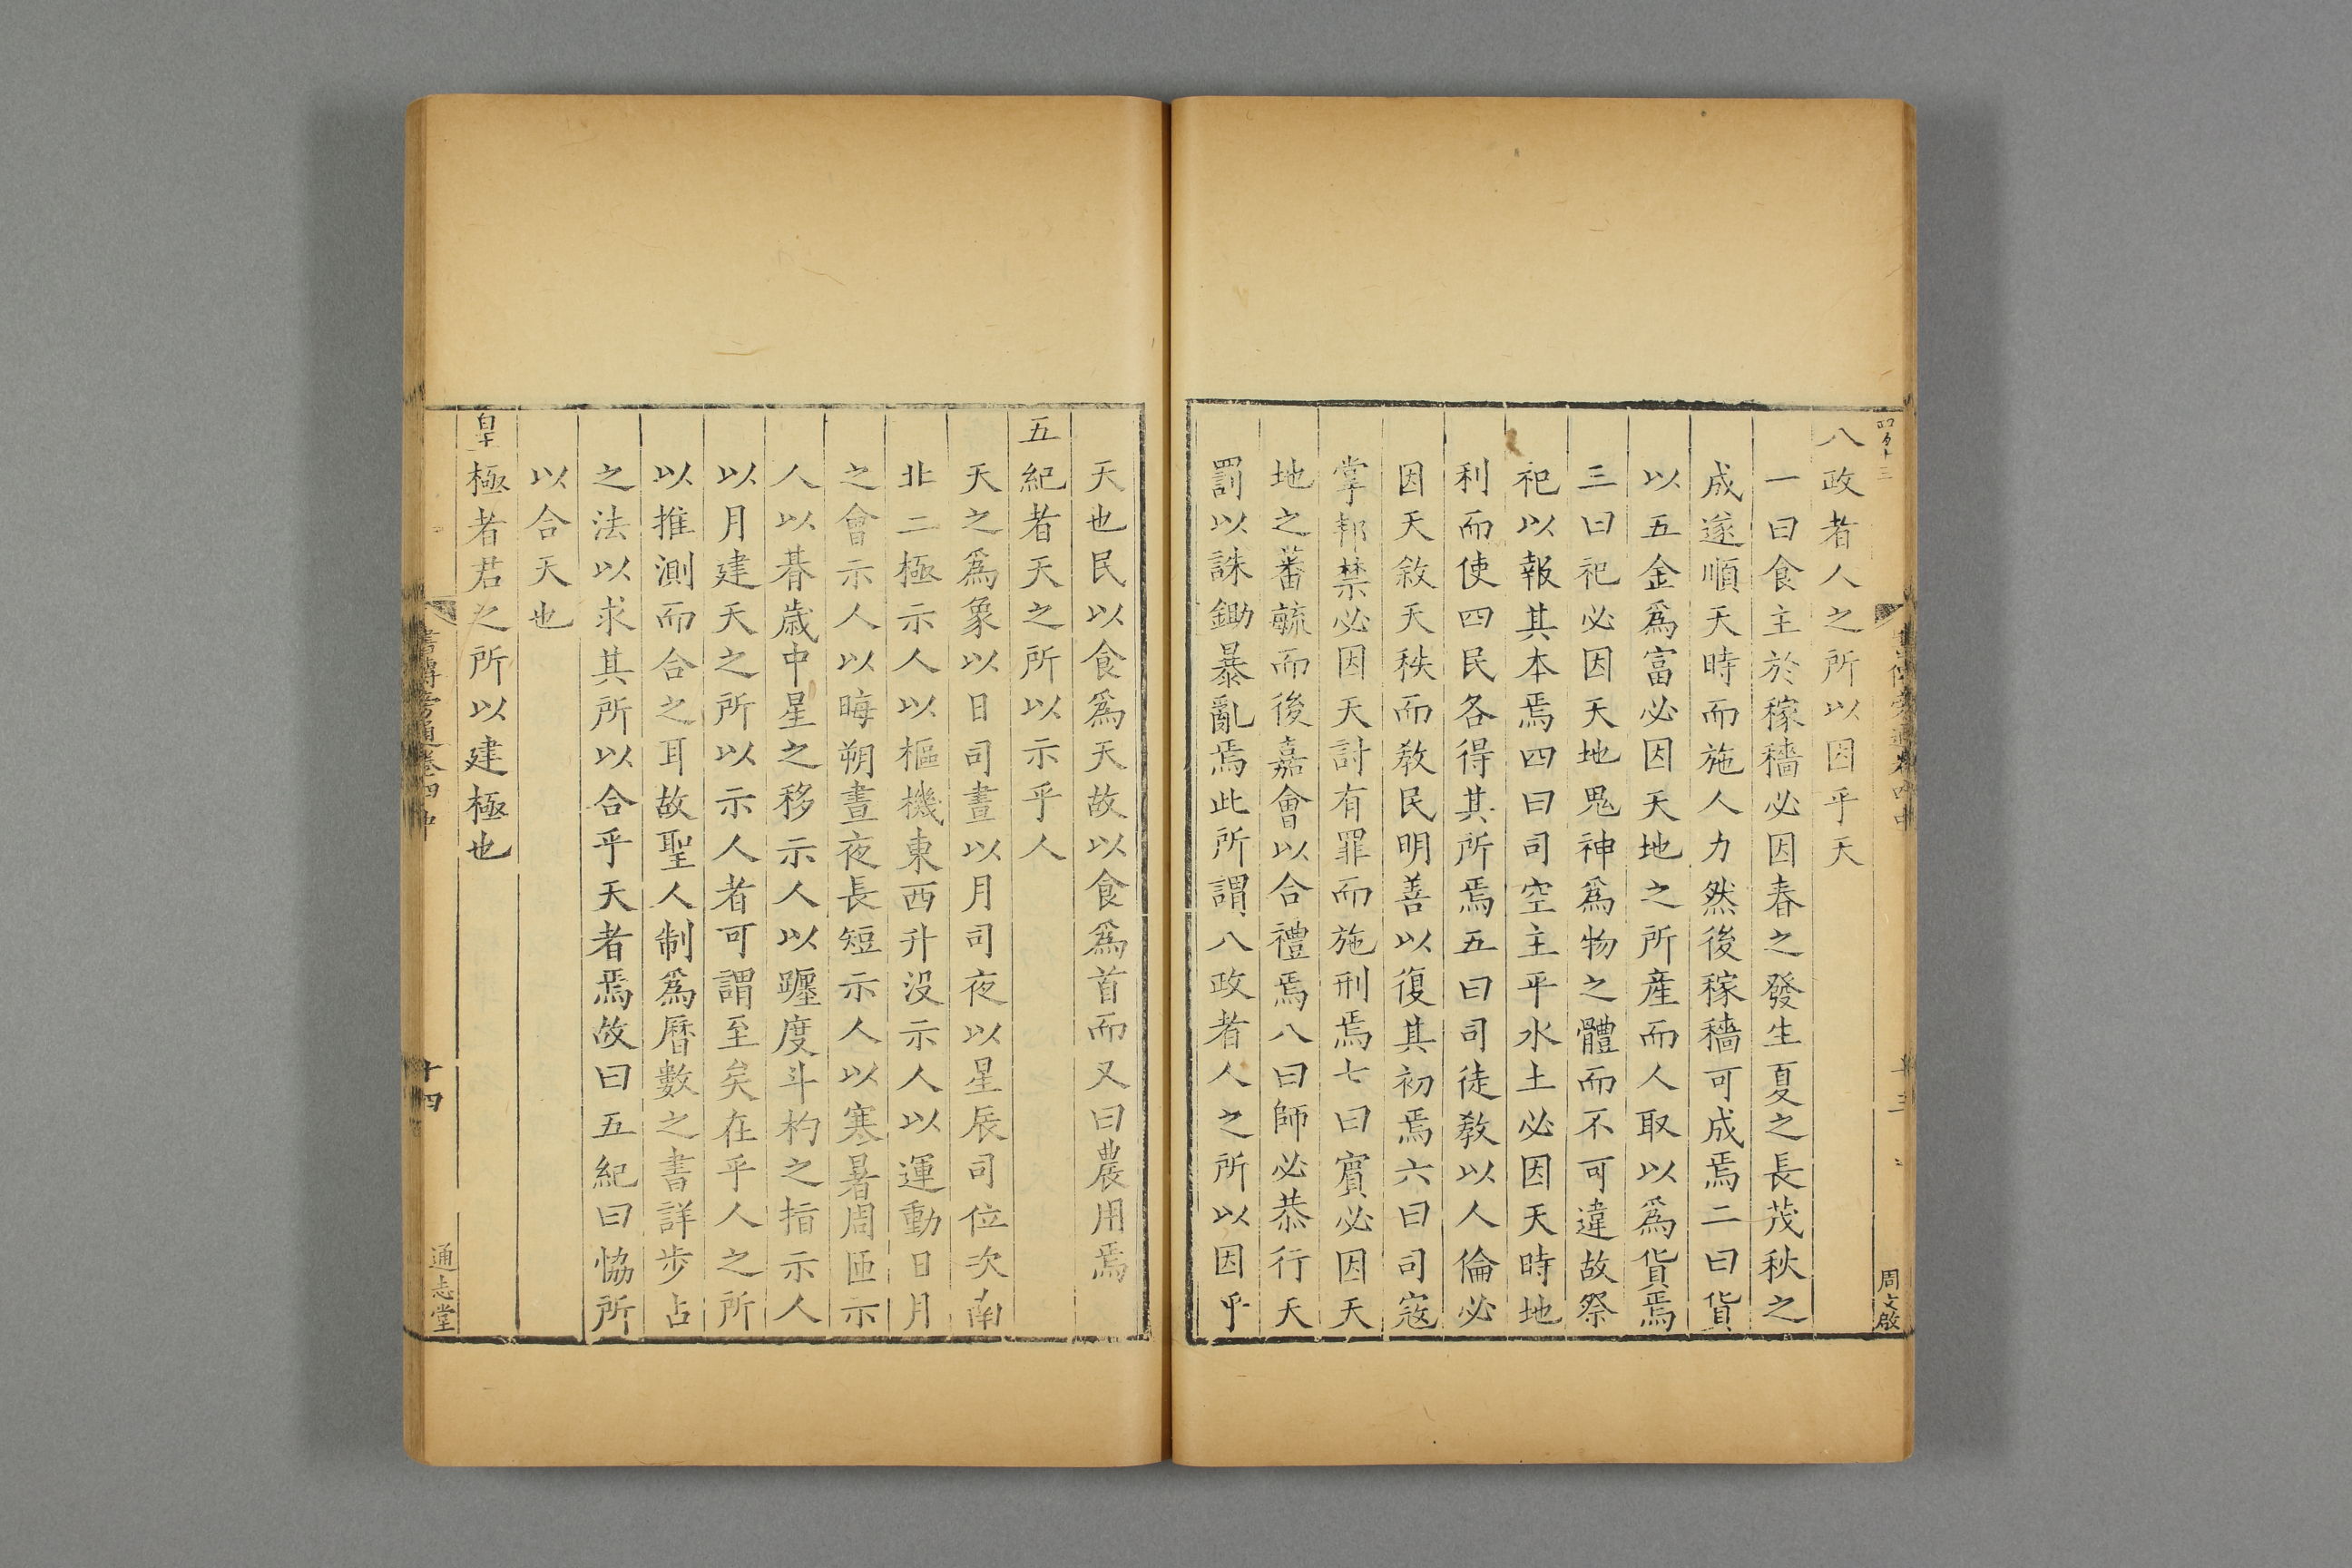 八政者人之所以因乎天
一曰食主於稼穡必因春之發生夏之長茂秋之
成遂順天時而施人力然後稼穡可成焉二曰貨
以五金爲富必因天地之所産而人取以爲貨焉
三曰祀必因天地鬼神爲物之體而不可違故祭
祀以報其本焉四曰司空主平水土必因天時地
利而使四民各得其所焉五曰司徒敎以人倫必
因天敘天秩而敎民明善以復其初焉六曰司寇
掌邦禁必因天討有罪而施刑焉七曰賓必因天
地之蕃毓而後嘉會以合禮焉八曰師必恭行天
罰以誅鋤暴亂焉此所謂八政者人之所以因乎
周文啟
天也民以食爲天故以食爲首而又曰農用焉
五紀者天之所以示乎人
天之爲象以日司晝以月司夜以星辰司位次南
北二極示人以樞機東西升没示人以運動日月
之會示人以晦朔晝夜長短示人以寒暑周匝示
人以朞歲中星之移示人以躔度斗杓之指示人
以月建天之所以示人者可謂至矣在乎人之所
以推測而合之耳故聖人制爲曆數之書詳步占
之法以求其所以合乎天者焉故曰五紀曰恊所
以合天也
皇極者君之所以建極也
書傳旁通卷四中
十四
通志堂